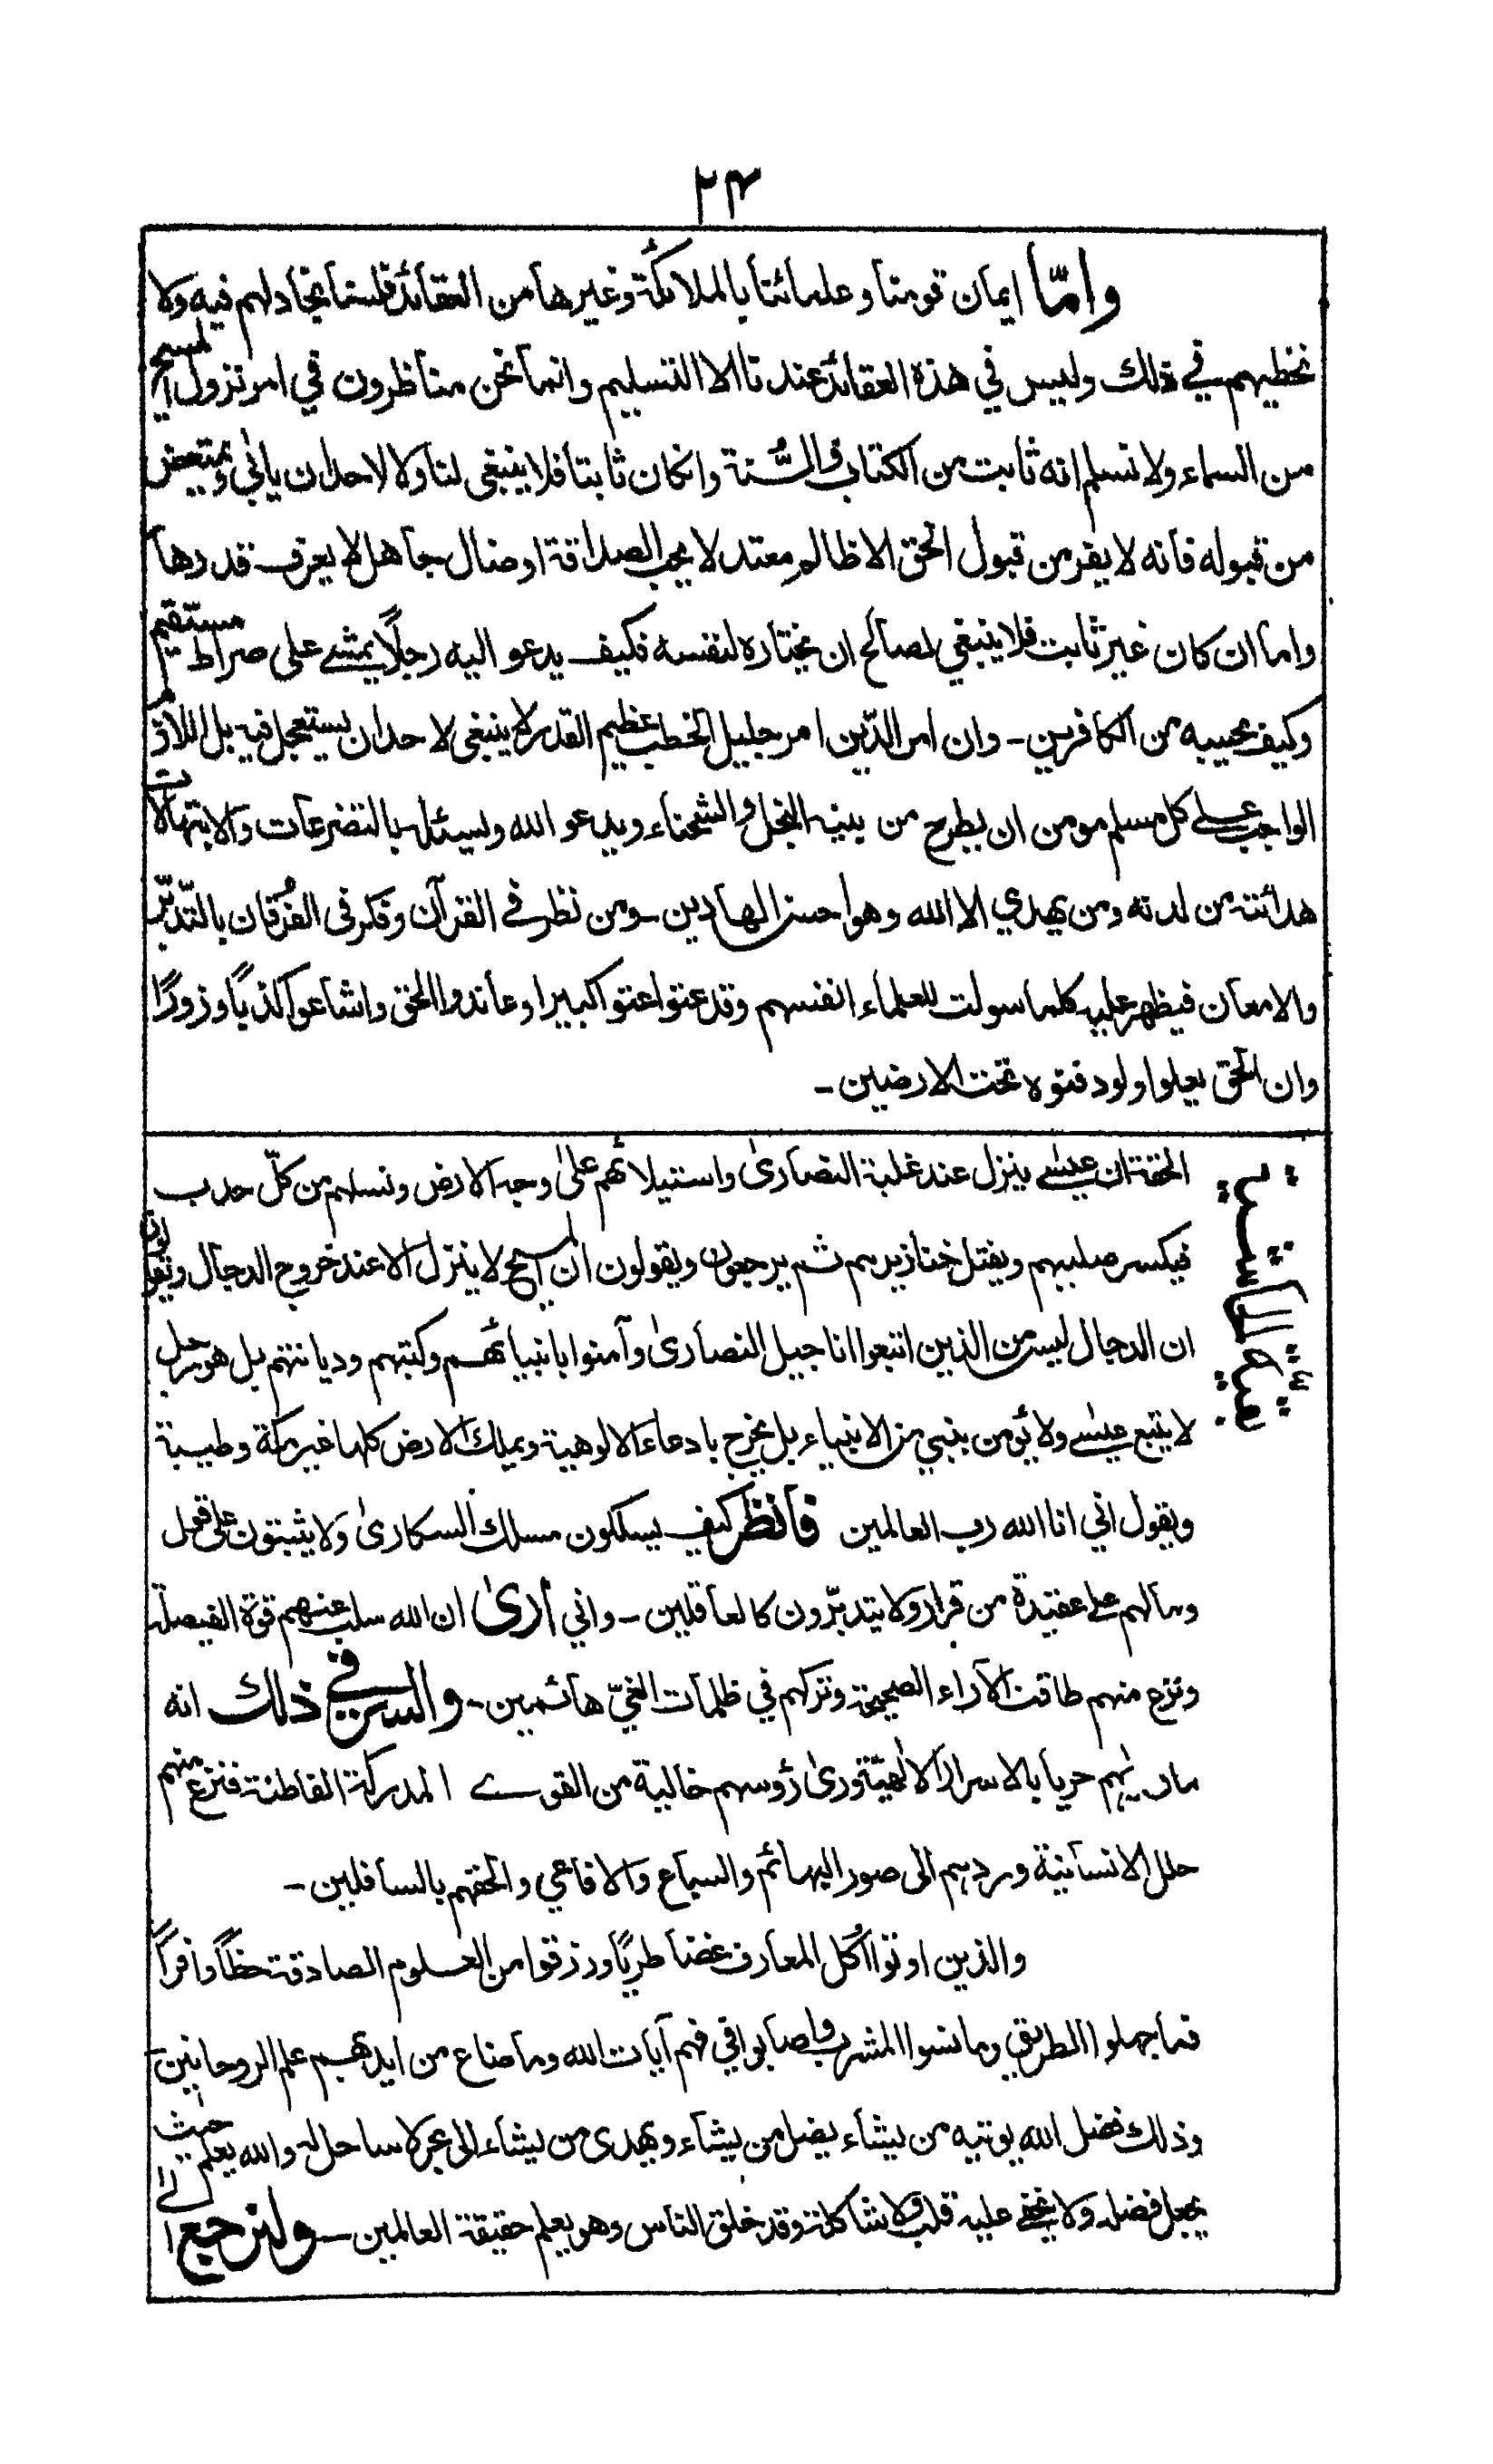 ۲۴
وامّا ايمان قومنا وعلمائنا بالملائكة وغيرها من العقائد فلسنا نجادلهم فيه ولا
نخطيهم في ذلك وليس في هذه العقائد عندنا الا التسليم وانما نحن مناظرون في امر نزول المسيح
من السماء ولا نسلم انه ثابت من الكتاب والسُّنة وانكان ثابتا فلا ينبغى لنا ولا لاحد ان يابى ويمتعض
من قبوله فانه لا يفر من قبول الحق الا ظالم معتد لا يحب الصداقة او ضال جاهل لا يعرف قدرها
واما ان كان غير ثابت فلا ينبغي لصالح ان يختاره لنفسه فكيف يدعو اليه رجلًا يمشے على صراط مستقيم
وكيف يحسبه من الكافرين - وان امر الدّين امر جليل الخطب عظيم القدر لا ينبغى لاحد ان يستعجل فيه بل اللازم
الواجب علے كل مسلم مومن ان يطرح من بينه البخل والشحناء ويدعو الله ويسئله بالتضرعات والابتهالات
هدائته من لدنه ومن يهدي الا الله وهو احسن الهادين - ومن نظر في القرآن وفكر فى الفُرقان بالتّدبّر
والامعان فيظهر عليه كلما سولت للعلماء انفسهم وقد عتوا عتوا كبيرا وعاندوا الحق واشاعوا كذبًا وزورًا
وان الحق يعلوا ولو دفنوه تحت الارضين -
بقية الحاشية
الحقة ان عيسٰے ينزل عند غلبة النصارىٰ واستيلائهم علىٰ وجه الارض ونسلهم من كلّ حدب
فيكسر صليبهم ويقتل خنازيرهم ثم يرجعون ويقولون ان المسيح لا ينزل الا عند خروج الدجال ويقولون
ان الدجال ليس من الذين اتبعوا اناجيل النصارىٰ وآمنوا بانبيائهم وكتبهم وديانتهم بل هو رجل
لا يتبع عيسٰے ولا يؤمن بنبي من الانبياء بل يخرج بادعاء الالوهية ويملك الارض كلها غير مكة وطيبة
ويقول اني انا الله رب العالمين فانظر كيف يسلكون مسلك السكارىٰ ولا يثبتون على قول
وما لهم على عقيدة من قرار ولا يتدبّرون كالعاقلين - واني ارىٰ ان الله سلب عنهم قوة الفيصلة
ونزع منهم طاقت الآراء الصحيحة وتركهم في ظلمات الغيّ هائمين - والسر في ذلك انه
ما رٰيهم حريا بالاسرار الالٰهية ورىٰ رؤوسهم خالية من القوے المدركة الفاطنة فنزع منهم
حلل الانسانية وردهم الى صور البهائم والسباع والافاعي والحقهم بالسافلين -
والذين اوتوا اكل المعارف غضا طريًا ورزقوا من العلوم الصادقة حظًا وافرًا
فما جهلوا الطريق وما نسوا المشرب واصابوا في فهم آيات الله وما ضاع من ايديهم علم الروحانيين
وذلك فضل الله يوتيه من يشاء يضل من يشاء ويهدى من يشاء الى بحر لا ساحل له والله يعلم حيث
يجعل فضله ولا يخفى عليه قلب ولا شاكلة وقد خلق الناس وهو يعلم حقيقة العالمين - ولنرجع الے